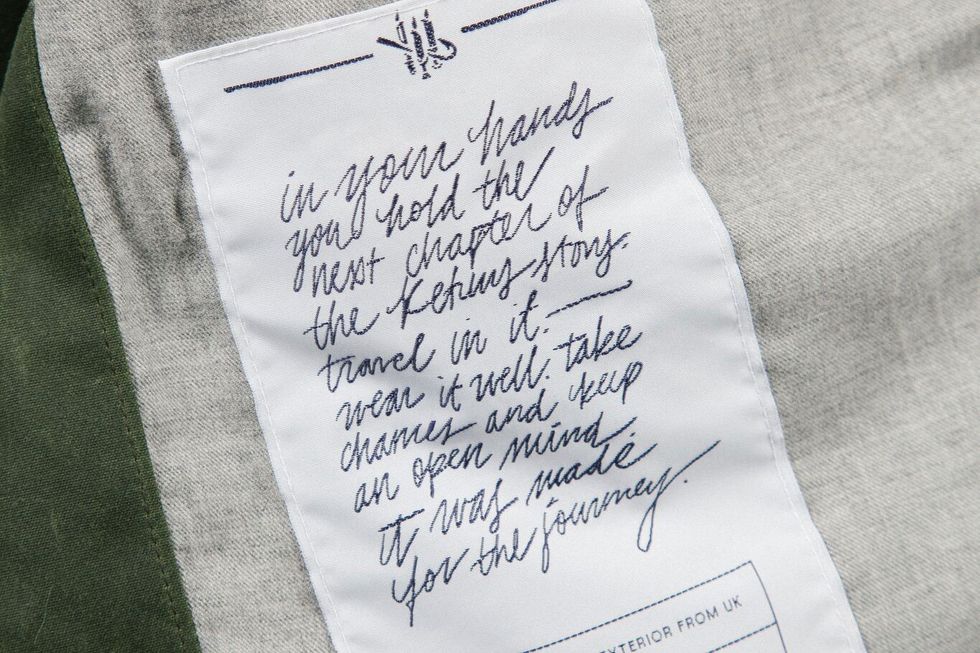 in your hands
you hold the
next chapter of
the Ketiwy story.
travel in it.
wear it well. take
chances and keep
an open mind.
it was made
for the journey.
EXTERIOR FROM UK